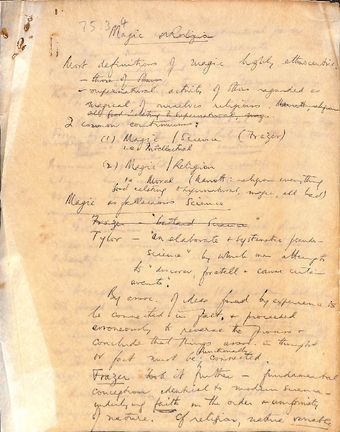 753 4
Magic & Religion
Most definitions of magic highly ethnocentric -
- those of others
- supernatural activity of others regarded as
magical of ourselves religious. Marrett - religion
all good relating to supernatural, magic
2 common continuums:
(1) Magic / Science (Frazer)
i.e. Intellectual
(2) Magic / Religion
i.e. Moral (Marett: religion everything
good relating to supernatural, magic, all bad)
Magic as fallacious Science
Frazer "bastard Science"
Tylor - "an elaborate & systematic pseudo-
science" by which men attempt
to "discover, foretell & cause certain
events".
By error of ideas found by experience to
be connected in fact, & proceed
erroneously to reverse the process &
conclude that things assoc. in thought
or fact must be functionally connected.
Frazer took it further - fundamental
conception identical to modern science -
underlying faith in the order & uniformity
of nature. Of religion, nature variable